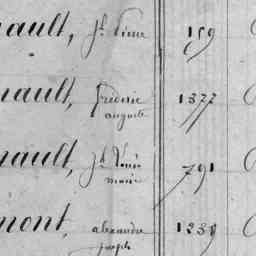 nault, Jh Pierre 159
nault, frederic 1377
auguste
nault, Jh Louis 791
marie
mont, alexandre 1239
joseph